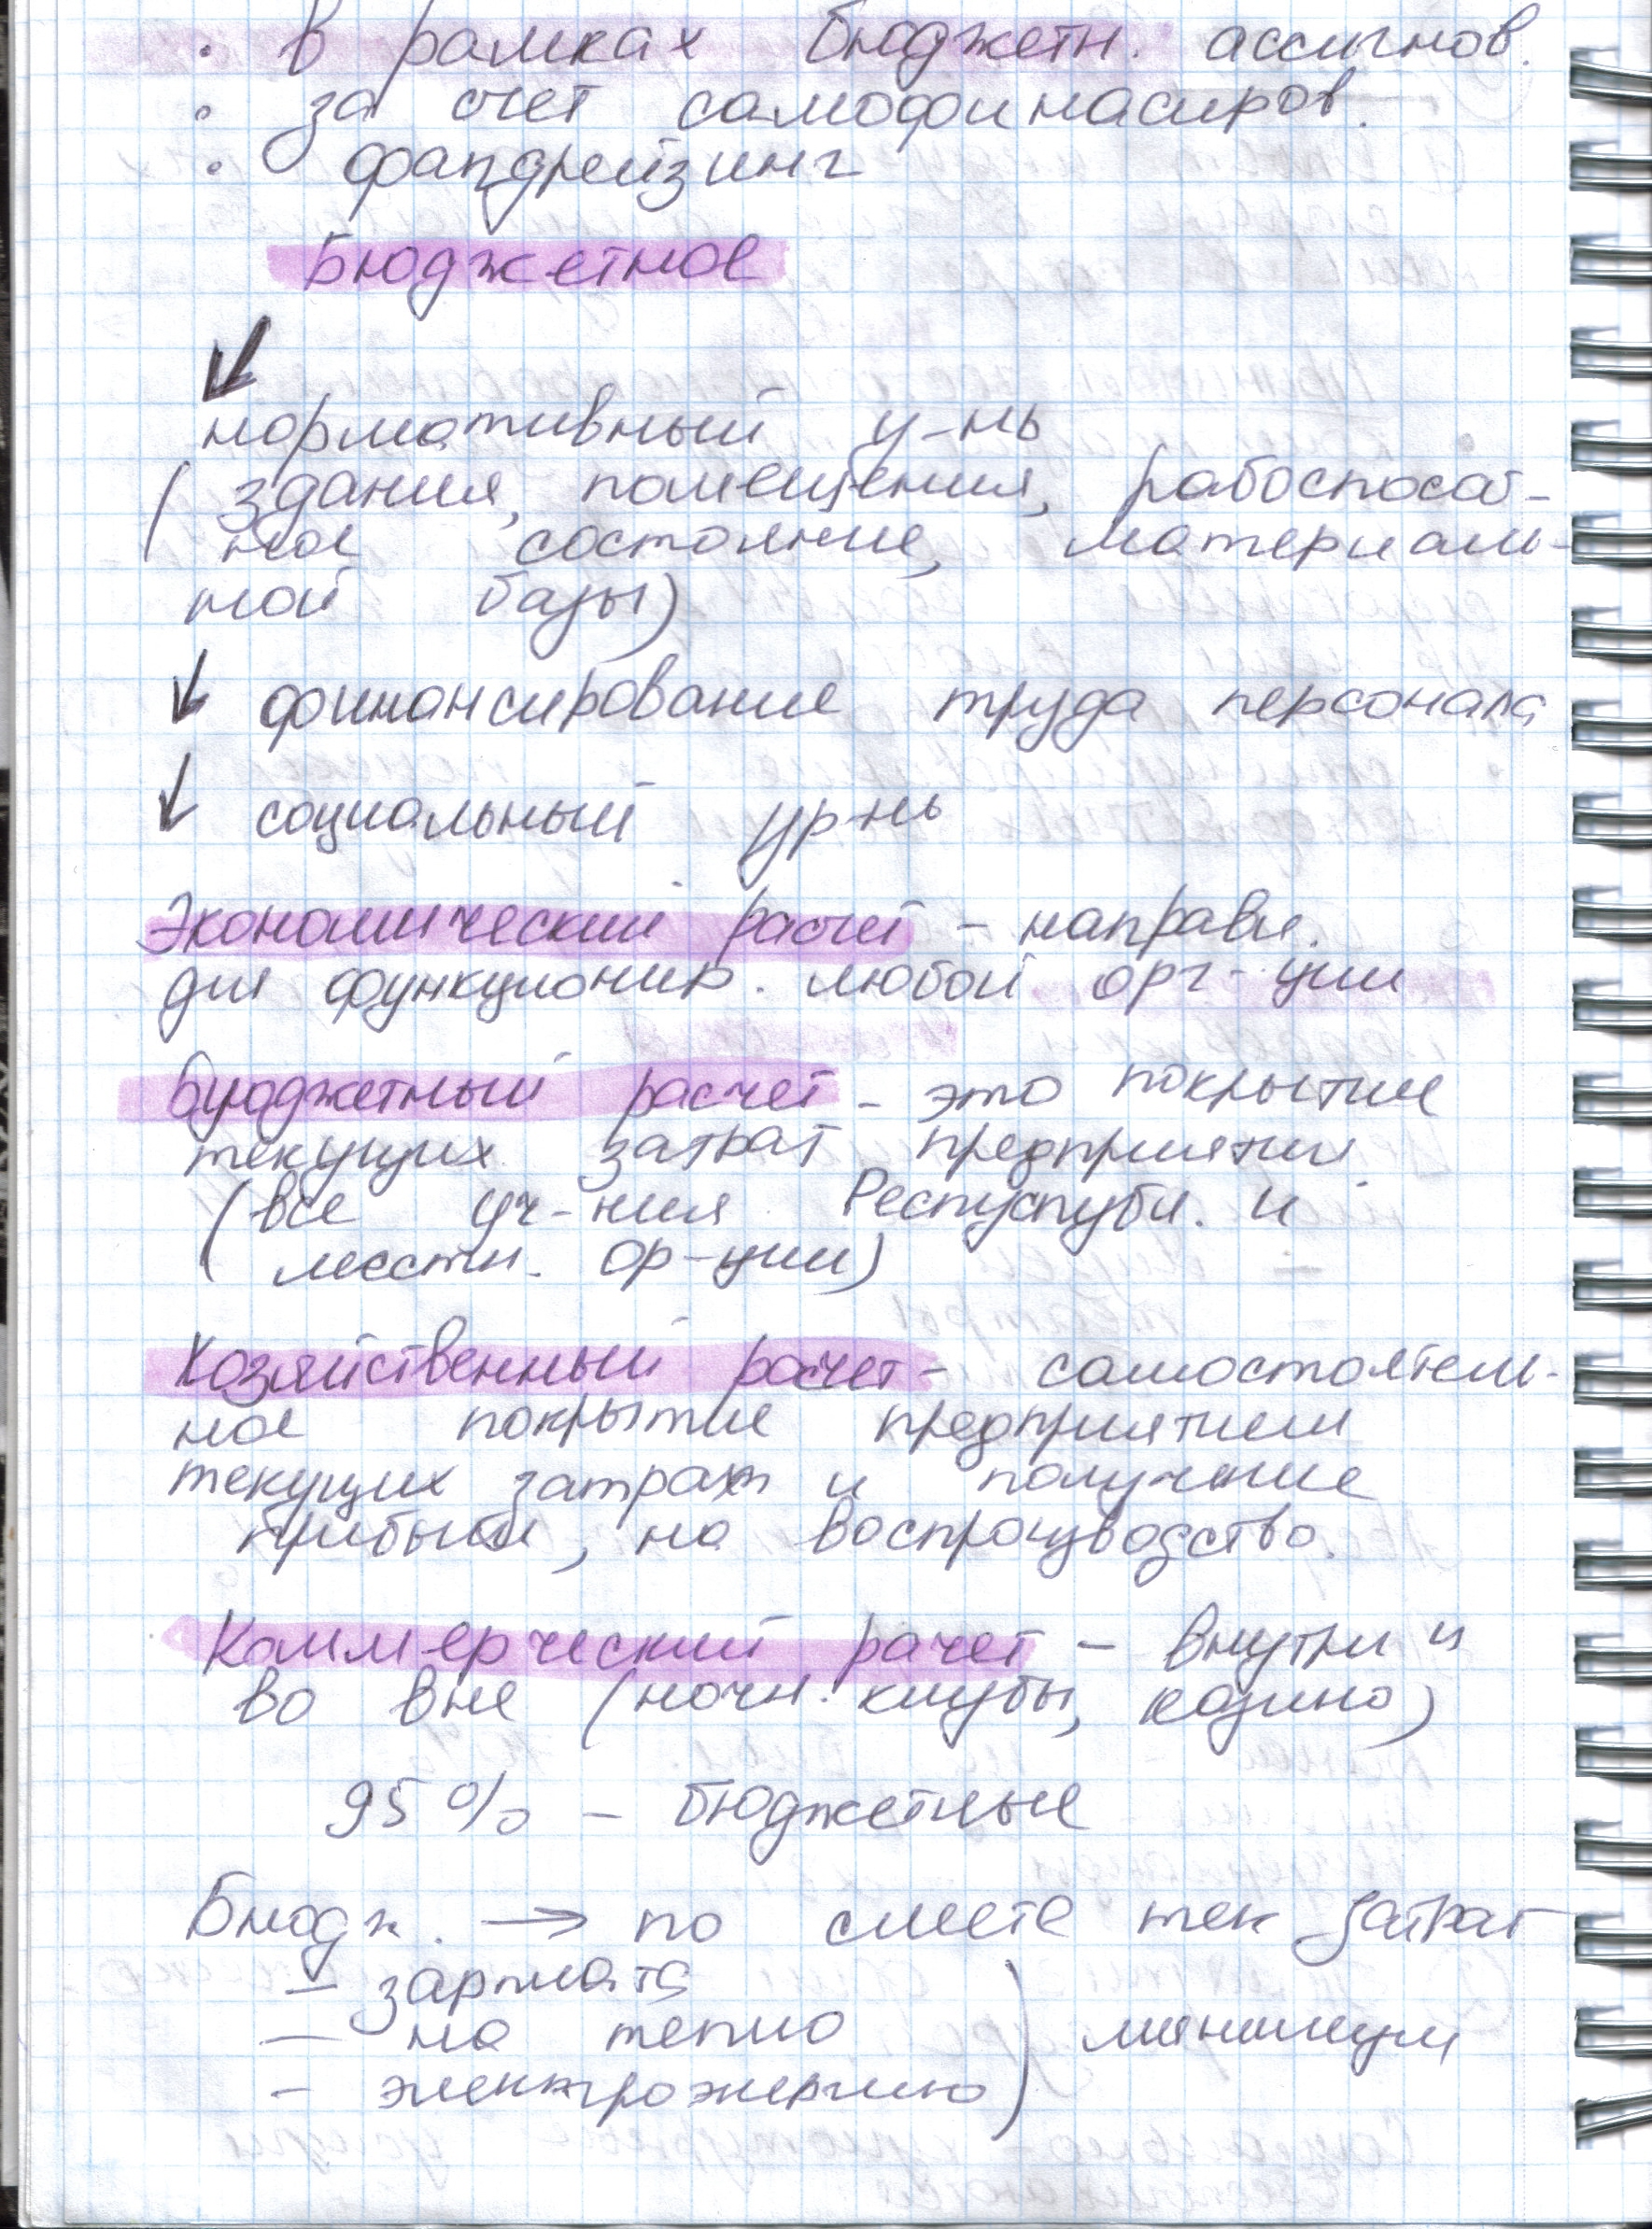 • в рамках бюджетн. ассигнов.
• за счет самофинасиров.
• фандрейзинг
Бюджетное
нормативный у-нь
(здания, помещения, рабоспособ-
ное состояние, материаль-
ной базы)
финансирование труда персонала
социальный ур-нь
Экономический расчет - направл.
для функционир. любой орг-ции
Бюджетный расчет - это покрытие
текущих затрат предприятия
(все уч-ния Респуспубл. и
местн. ор-ции)
Хозяйственный расчет - самостоятель-
ное покрытие предприятием
текущих затрат и получение
прибыли, на воспроизводство.
Коммерческий рачет - внутри и
во вне (ночн. клубы, казино)
95% - бюджетные
Бюдж. → по смете тек затрат
- зарплата
- на тепло ) минимум
- электроэнергию